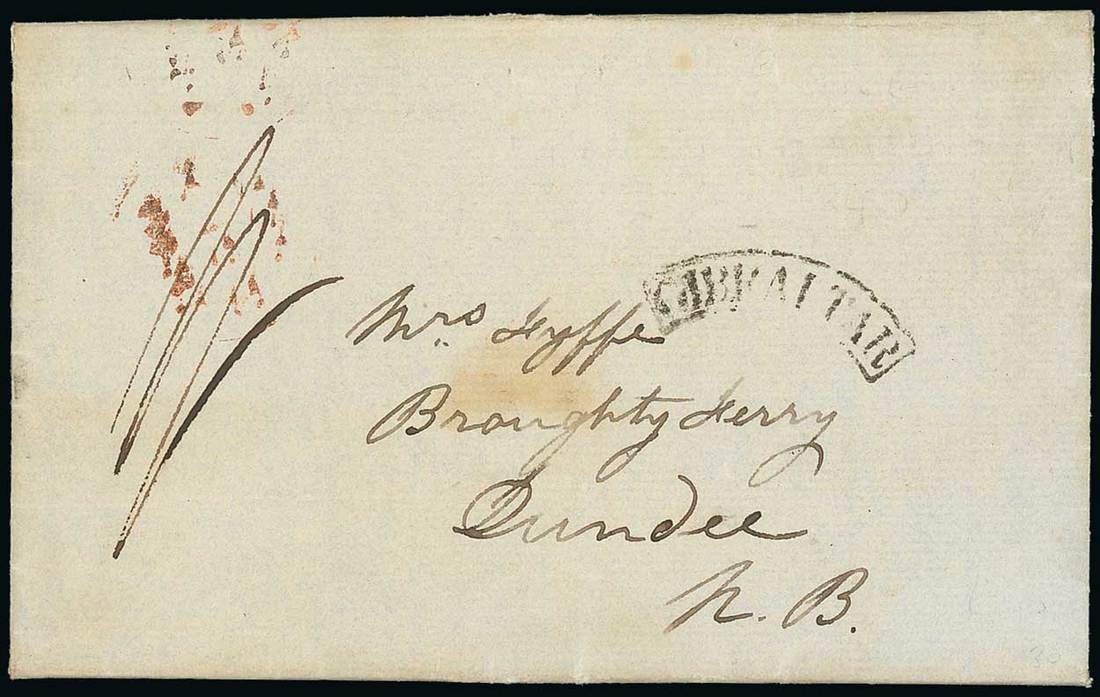 GIBRALTAR
Mrs Fyffe
Broughty Ferry
Dundee
N. B.
30